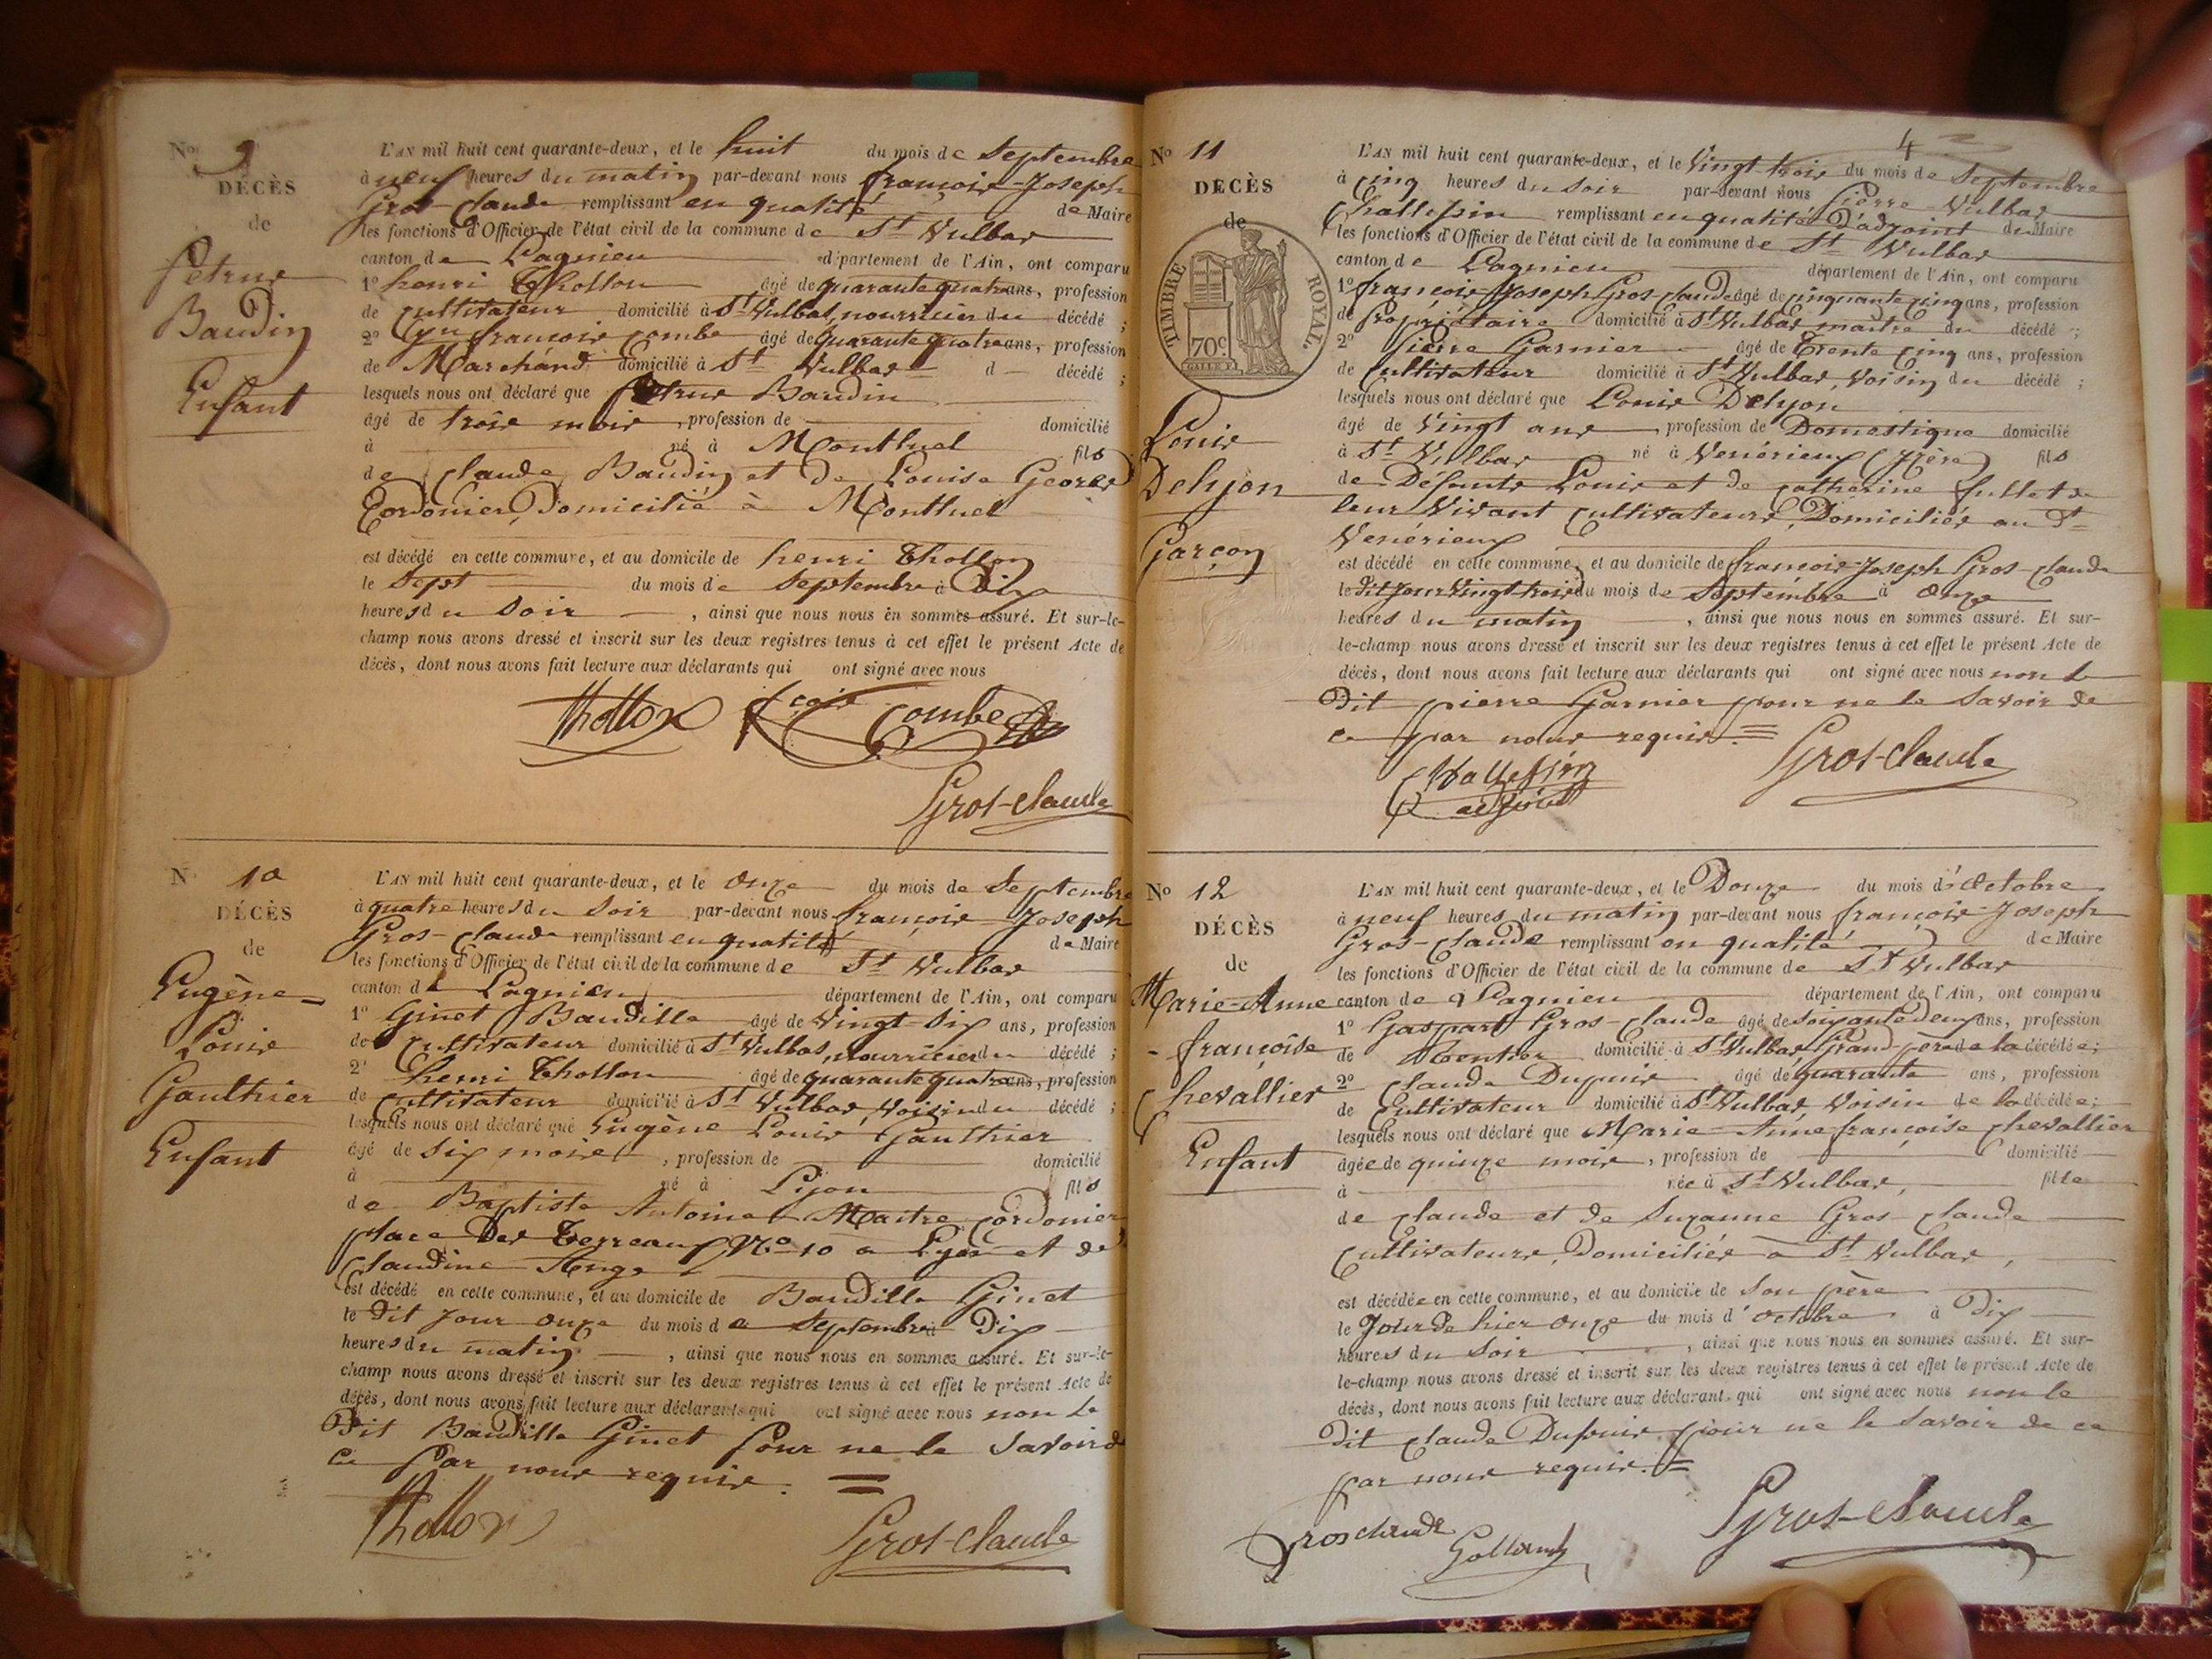 No 9
DÉCÈS
de
Petrus
Baudin
Enfant
L'AN mil huit cent quarante-deux, et le huit du mois de Septembre
à neuf heures du matin par-devant nous françois-Joseph
Gros-Claude remplissant en qualité de Maire
les fonctions d'Officier de l'état civil de la commune de St Vulbas
canton de Lagnieu département de l'Ain, ont comparu
1º henri Thollon âgé de quarante quatre ans, profession
de cultivateur domicilié à St Vulbas, nourricier du décédé ;
2º françois Combe âgé de quarante quatre ans, profession
de Marchand domicilié à St Vulbas d décédé ;
lesquels nous ont déclaré que Petrus Baudin
âgé de trois mois, profession de domicilié
à né à Montluel fils
de Claude Baudin et de Louise Georges
Cordonier, Domicilié à Montluel
est décédé en cette commune, et au domicile de henri Thollon
le Sept du mois de Septembre à Dix
heures du Soir, ainsi que nous nous en sommes assuré. Et sur-le-
champ nous avons dressé et inscrit sur les deux registres tenus à cet effet le présent Acte de
décès, dont nous avons fait lecture aux déclarants qui ont signé avec nous
Thollon fçois Combe
Gros-Claude
No 10
DÉCÈS
de
Eugène-
Louis
Gaulthier
Enfant
L'AN mil huit cent quarante-deux, et le Onze du mois de Septembre
à quatre heures du Soir par-devant nous françois Joseph
Gros-Claude remplissant en qualité de Maire
les fonctions d'Officier de l'état civil de la commune de St Vulbas
canton de Lagnieu département de l'Ain, ont comparu
1º Ginet Baudille âgé de Vingt-Six ans, profession
de Cultivateur domicilié à St Vulbas, nourricier du décédé ;
2º henri Thollon âgé de quarante quatre ans, profession
de Cultivateur domicilié à St Vulbas, Voisin du décédé ;
lesquels nous ont déclaré que Eugène Louis Gaulthier
âgé de Six mois, profession de domicilié
à né à Lyon fils
de Baptiste Antoine Maitre Cordonier
place Des Terreaux No 10 a Lyon et de
Claudine
est décédé en cette commune, et au domicile de Baudille Ginet
le Dit Jour onze du mois de Septembre à Dix
heures du matin, ainsi que nous nous en sommes assuré. Et sur-le-
champ nous avons dressé et inscrit sur les deux registres tenus à cet effet le présent Acte de
décès, dont nous avons fait lecture aux déclarants qui ont signé avec nous non le
Dit Baudille Ginet pour ne le Savoir de
ce Par nous requis.
Thollon
Gros-Claude
4
No 11
DÉCÈS
de
TIMBRE ROYAL.
70c
Louis
Delyon
Garçon
L'AN mil huit cent quarante-deux, et le Vingt-trois du mois de Septembre
à Cinq heures du Soir par-devant nous Pierre-Vulbas
Challessin remplissant en qualité D'adjoint du Maire
les fonctions d'Officier de l'état civil de la commune de St Vulbas
canton de Lagnieu département de l'Ain, ont comparu
1º françois-Joseph Gros-Claude âgé de cinquante cinq ans, profession
de Propriétaire domicilié à St Vulbas maître du décédé ;
2º Pierre Garnier âgé de Trente Cinq ans, profession
de Cultivateur domicilié à St Vulbas, Voisin du décédé ;
lesquels nous ont déclaré que Louis Delyon
âgé de Vingt ans, profession de Domestique domicilié
à St Vulbas né à Venérieux (Isère) fils
de Défunts Louis et de Catherine de
leur Vivant Cultivateurs, Domiciliés au dt
Venérieux
est décédé en cette commune, et au domicile de françois-Joseph Gros-Claude
le Dit Jour Vingt trois du mois de Septembre à Onze
heures du matin, ainsi que nous nous en sommes assuré. Et sur-
le-champ nous avons dressé et inscrit sur les deux registres tenus à cet effet le présent Acte de
décès, dont nous avons fait lecture aux déclarants qui ont signé avec nous non le
Dit pierre Garnier pour ne le Savoir de
ce par nous requis.
Challessin
adjoint
Gros-Claude
No 12
DÉCÈS
de
Marie-Anne
-françoise
Chevallier
Enfant
L'AN mil huit cent quarante-deux, et le Douze du mois d'Octobre
à neuf heures du matin par-devant nous françois-Joseph
Gros-Claude remplissant en qualité de Maire
les fonctions d'Officier de l'état civil de la commune de St Vulbas
canton de Lagnieu département de l'Ain, ont comparu
1º Gaspart Gros-Claude âgé de Soixante deux ans, profession
de Rentier domicilié à St Vulbas, Grand père de la décédée ;
2º Claude Dupuis âgé de quarante ans, profession
de Cultivateur domicilié à St Vulbas, Voisin de la décédée ;
lesquels nous ont déclaré que Marie-Anne françoise Chevallier
âgée de quinze mois, profession de domicilié
à née à St Vulbas, fille
de Claude et de Suzanne Gros-Claude
Cultivateurs, Domiciliés à St Vulbas,
est décédée en cette commune, et au domicile de Son père
le Jour de hier onze du mois d'octobre à Dix
heures du Soir, ainsi que nous nous en sommes assuré. Et sur-
le-champ nous avons dressé et inscrit sur les deux registres tenus à cet effet le présent Acte de
décès, dont nous avons fait lecture aux déclarants qui ont signé avec nous non le
Dit Claude Dupuis pour ne le Savoir de ce
par nous requis.
Grosclaude
Gros-Claude